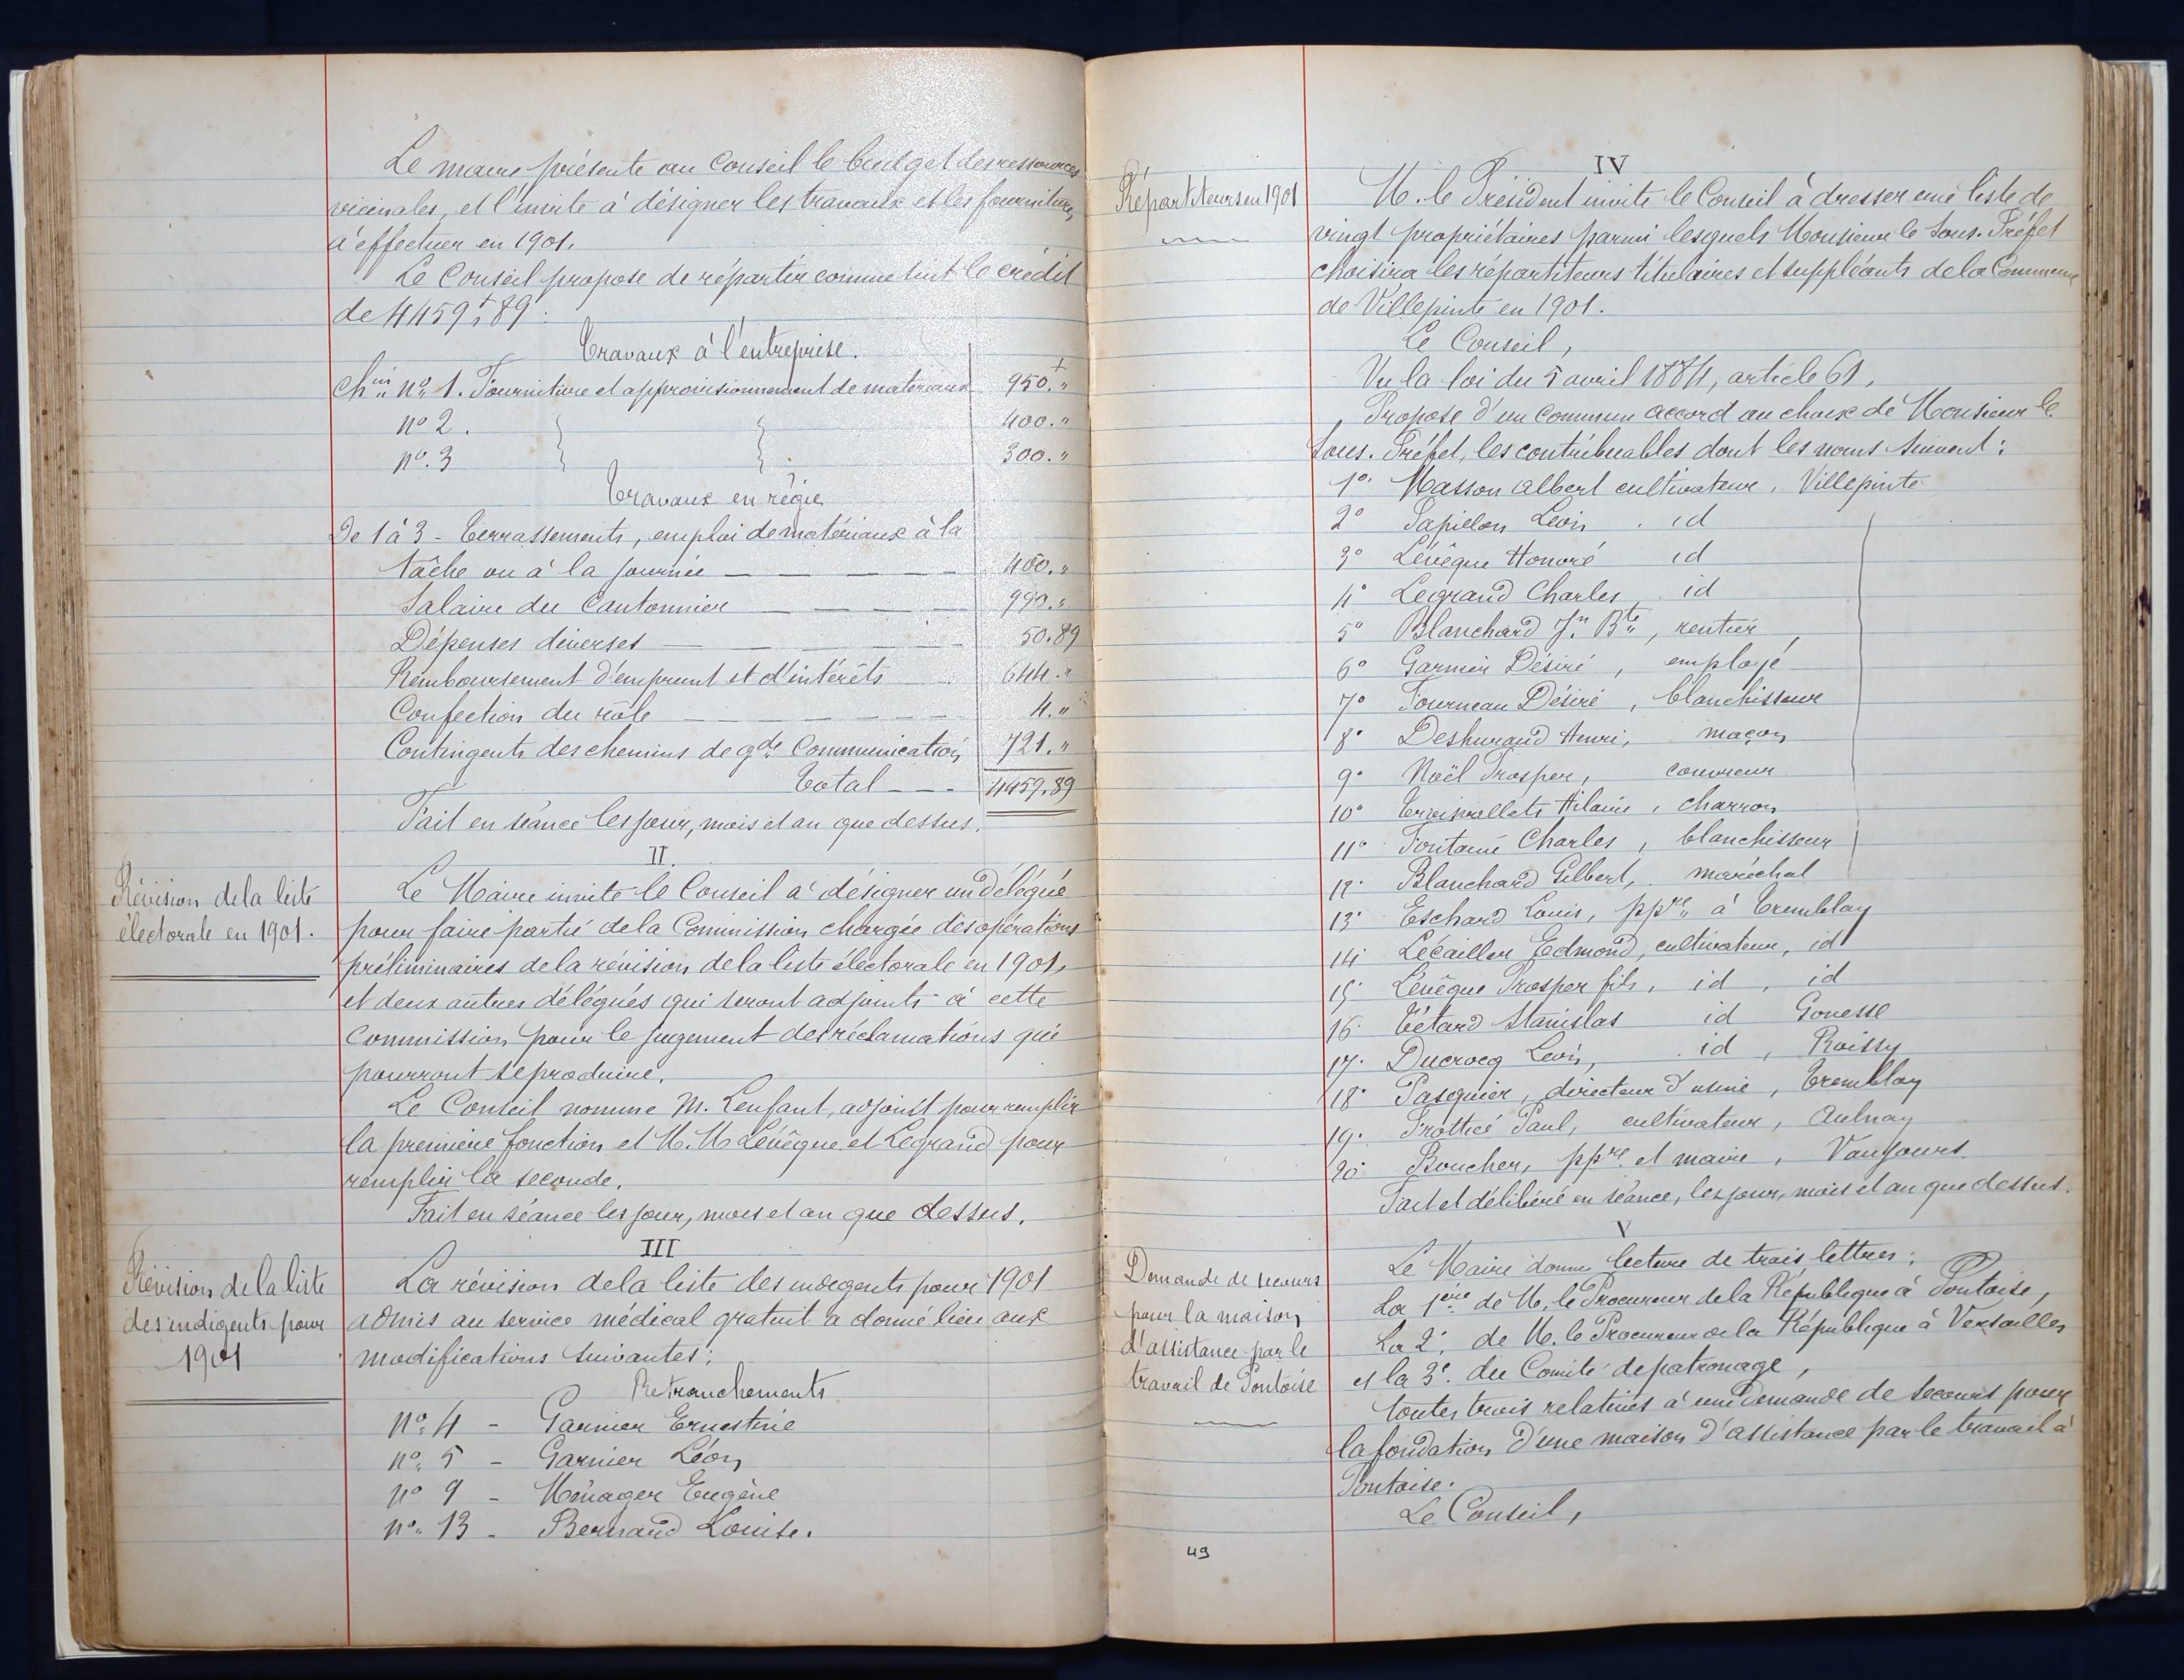 Le maire présente au Conseil le budget des ressources
vicinales, et l'invite à désigner les travaux et les fournitures
à effectuer en 1901.
Le Conseil propose de répartir comme suit le crédit
de 4459f,89 :
Travaux à l'entreprise.
Chin no 1. Fourniture et approvisionnement de matériaux 950.f"
no 2. 400."
no. 3 300."
Travaux en régie
De 1 à 3 - Terrassements, emploi de matériaux à la
tâche ou à la journée — — — — 400."
Salaire du Cantonnier — — — — 990."
Dépenses diverses — — — — 50.89
Remboursement d'emprunt et d'intérêts 644."
Confection du rôle — — — — 4."
Contingents des chemins de gde Communication 721."
Total - - - 4459.89
Fait en séance les jour, mois et an que dessus.
II.
Révision de la liste
électorale en 1901.
Le Maire invite le Conseil à désigner un délégué
pour faire partie de la Commission chargée des opérations
préliminaires de la révision de la liste électorale en 1901,
et deux autres délégués qui seront adjoints à cette
Commission pour le jugement des réclamations qui
pourront se produire.
Le Conseil nomme M. Lenfant, adjoint pour remplir
la première fonction et M. M Lévêque et Legrand pour
remplir la seconde.
Fait en séance les jour, mois et an que dessus.
III
Révision de la liste
des indigents pour
1901
La révision de la liste des indigents pour 1901
admis au service médical gratuit a donné lieu aux
modifications suivantes :
Retranchements
no. 4 - Garnier Ernestine
no. 5 - Garnier Léon
no 9 - Ménager Eugène
no. 13 - Bernard Louise.
IV
Répartiteurs en 1901
M. le Président invite le Conseil à dresser une liste de
vingt propriétaires parmi lesquels Monsieur le Sous-Préfet
choisira les répartiteurs titulaires et suppléants de la Commune
de Villepinte en 1901.
Le Conseil,
Vu la loi du 5 avril 1884, article 61,
Propose d'un commun accord au choix de Monsieur le
Sous-Préfet, les contribuables dont les noms suivent :
1o. Masson Albert cultivateur, Villepinte
2o Papillon Léon . id
3o Lévêque Honoré id
4o Legrand Charles, id
5o Blanchard Jn. Bte, rentier,
6o Garnier Désiré, employé
7o Fourneau Désiré, blanchisseur
8o Deshurand Henri, maçon
9o Noël Prosper, couvreur
10o Hilaire, charron
11o Fontaine Charles, blanchisseur
12. Blanchard Gilbert, maréchal
13. Eschard Louis, ppre à Tremblay
14. Lécaillon Edmond, cultivateur, id
15. Lévêque Prosper fils, id, id
16. Tétard Stanislas id Gonesse
17. Ducrocq Léon, id, Roissy
18. Pasquier, directeur d'usine, Tremblay
19. Paul, cultivateur, Aulnay
20. Boucher, ppre et maire, Vaujours.
Fait et délibéré en séance, les jour, mois et an que dessus.
V
Demande de secours
pour la maison
d'assistance par le
travail de Pontoise
Le Maire donne lecture de trois lettres :
La 1ère de M. le Procureur de la République à Pontoise,
La 2e. de M. le Procureur de la République à Versailles
et la 3e. du Comité de patronage,
toutes trois relatives à une demande de secours pour
la fondation d'une maison d'assistance par le travail à
Pontoise.
Le Conseil,
49